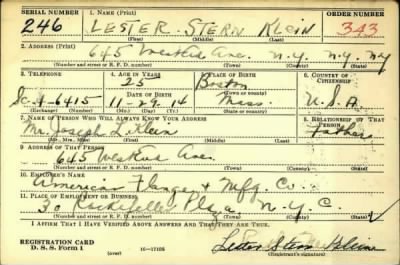 SERIAL NUMBER 1. NAME (Print) ORDER NUMBER
246 LESTER STERN KLEIN 343
(First) (Middle) (Last)
2. ADDRESS (Print)
645 West End Ave. N.Y. N.Y. NY
(Number and street or R. F. D. number) (Town) (County) (State)
3. TELEPHONE 4. AGE IN YEARS 5. PLACE OF BIRTH 6. COUNTRY OF CITIZENSHIP
25 Boston
DATE OF BIRTH (Town or county)
Sc. 4-6415 11-29-14 Mass. U.S.A.
(Exchange) (Number) (Mo.) (Day) (Yr.) (State or country)
7. NAME OF PERSON WHO WILL ALWAYS KNOW YOUR ADDRESS 8. RELATIONSHIP OF THAT PERSON
Mr. Joseph L. Klein Father
(Mr., Mrs., Miss) (First) (Middle) (Last)
9. ADDRESS OF THAT PERSON
645 West End Ave.
(Number and street or R. F. D. number) (Town) (County) (State)
10. EMPLOYER'S NAME
American Flange & Mfg. Co.
11. PLACE OF EMPLOYMENT OR BUSINESS
30 Rockefeller Plaza N.Y.C.
(Number and street or R. F. D. number) (Town) (County) (State)
I AFFIRM THAT I HAVE VERIFIED ABOVE ANSWERS AND THAT THEY ARE TRUE.
REGISTRATION CARD
D. S. S. Form 1 16-17105 Lester Stern Klein
(Registrant's signature)